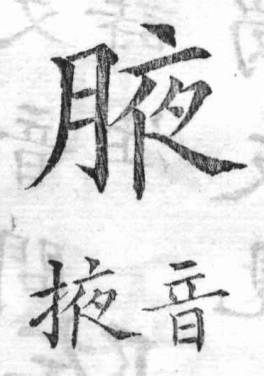 腋
音掖